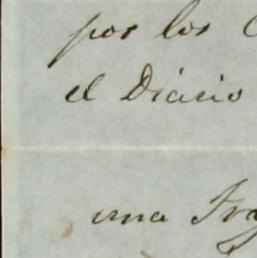 por los
el Diario
una